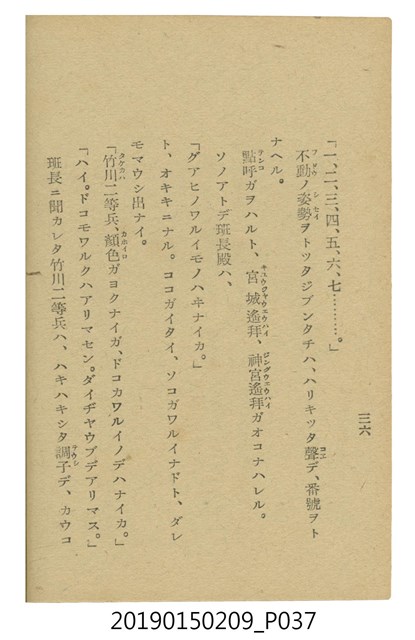 三六
「一、二、三、四、五、六、七………。」
不動ノ姿勢ヲトツタジブンクチハ、ハリキツタ聲デ、番號ヲト
ナヘル。
點呼ガヲハルト、宮城遙拜、神宮遙拜ガオコナハレル。
ソノアトデ班長殿ハ、
「グアヒノワルイモノハキナイカ。」
ト、オキキニナル。ココガイタイ、ソコガワルイナドト、ダレ
モマウシ出ナイ。
「竹川二等兵、顏色ガヨクナイガ、ドコカワルイノデハナイカ。」
「ハイ。ドコモワルクハアリマセン。ダイヂヤウブデアリマス。」
班長ニ聞カレタ竹川二等兵ハ、ハキハキシタ調子デ、カウコ
20190150209_P037